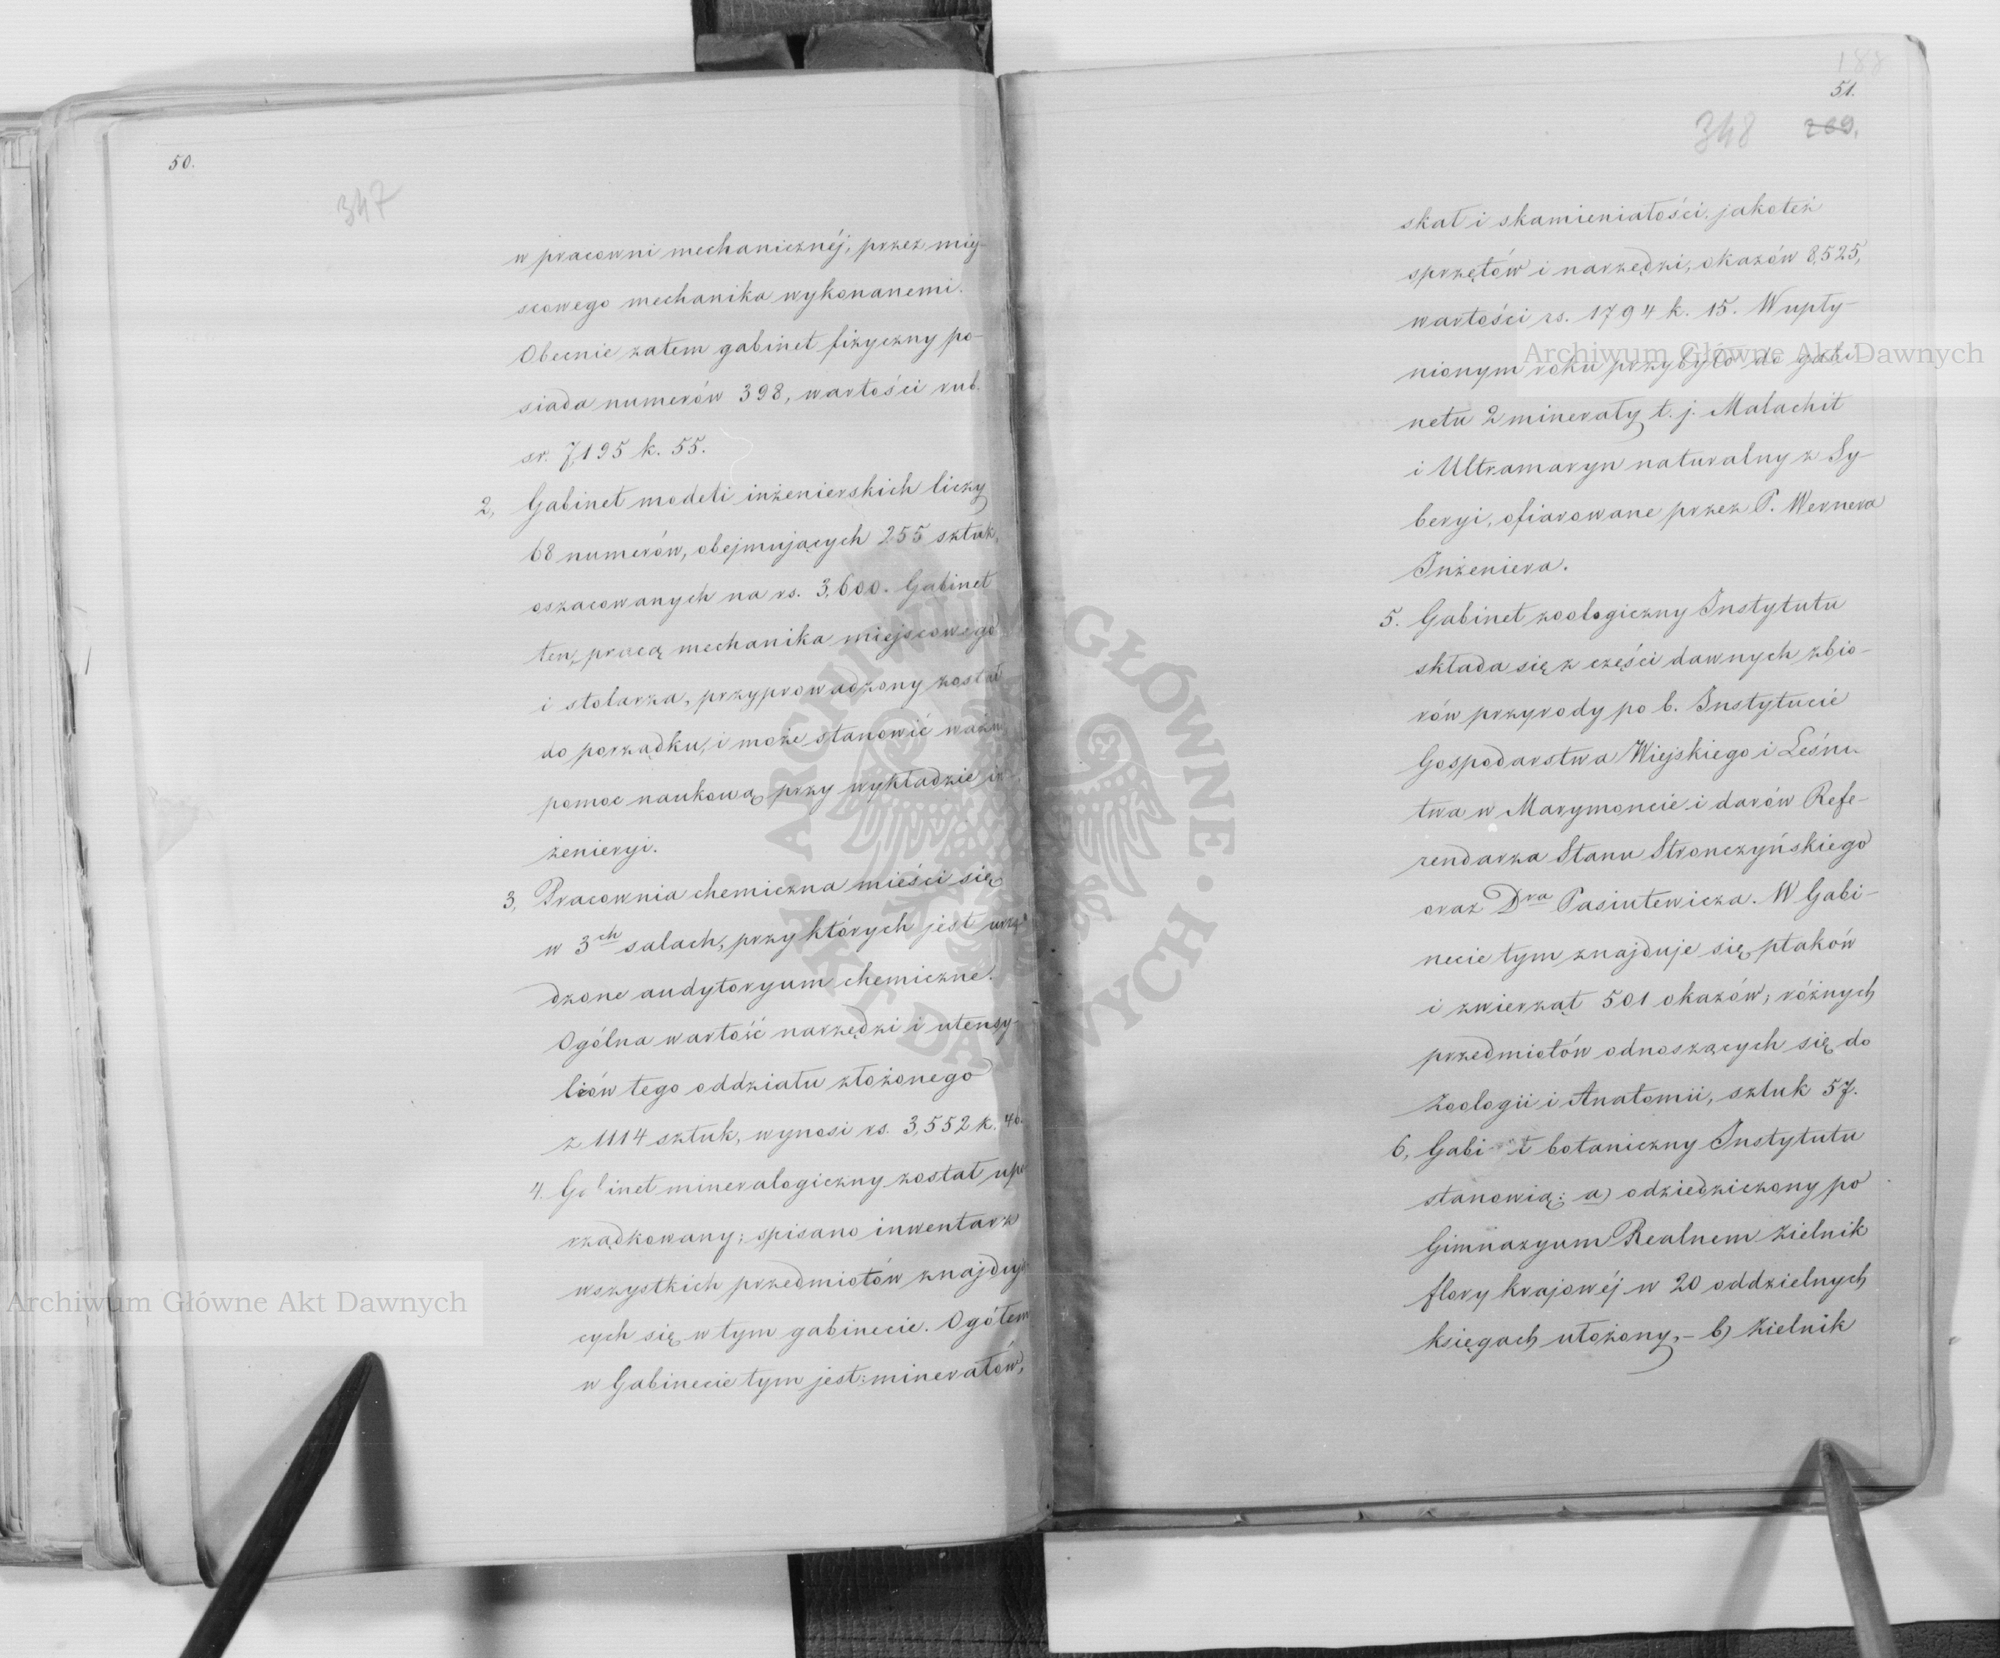 50.
347
w pracowni mechanicznéj, przez miej-
scowego mechanika wykonanemi.
Obecnie zatem gabinet fizyczny po-
siada numerów 398, wartości rub.
sr. 7,195 k. 55.
2, Gabinet modeli inżenierskich liczy
68 numerów, obejmujących 255 sztuk,
oszacowanych na rs. 3,600. Gabinet
ten, pracą mechanika miejscowego
i stolarza, przyprowadzony został
do porządku, i może stanowić ważn
pomoc naukową przy wykładzie in-
żenieryi.
3, Pracownia chemiczna mieści się
w 3ch salach, przy których jest urzą
dzone audytoryum chemiczne.
Ogólna wartość narzędzi i utensy-
liów tego oddziału złożonego
z 1114 sztuk, wynosi rs. 3,552 k. 40.
4. Ga inet mineralogiczny został upo
rządkowany; spisano inwentarz
wszystkich przedmiotów znajdują
cych się w tym gabinecie. Ogółem
w Gabinecie tym jest: minerałów,
188
51.
348 269,
skał i skamieniałości, jakoteż
sprzętów i narzędzi, okazów 8,525,
wartości rs. 1794 k. 15. W upły-
nionym roku przybyło do gabi
netu 2 minerały t. j. Malachit
i Ultramaryn naturalny z Sy-
beryi, ofiarowane przez P. Wernera
Inżeniera.
5. Gabinet zoologiczny Instytutu
składa się z części dawnych zbio-
rów przyrody po b. Instytucie
Gospodarstwa Wiejskiego i Leśni
twa w Marymoncie i darów Refe-
rendarza Stanu Stronczyńskiego
oraz Dra Pasiutewicza. W Gabi-
necie tym znajduje się ptaków
i zwierząt 501 okazów, różnych
przedmiotów odnoszących się do
Zoologii i Anatomii, sztuk 57.
6, Gabi t botaniczny Instytutu
stanowią: a) odziedziczony po
Gimnazyum Realnem zielnik
flory krajowéj w 20 oddzielnych
księgach ułożony, - b) zielnik
Archiwum Główne Akt Dawnych
Archiwum Główne Akt Dawnych
ARCHIWUM GŁÓWNE AKT DAWNYCH